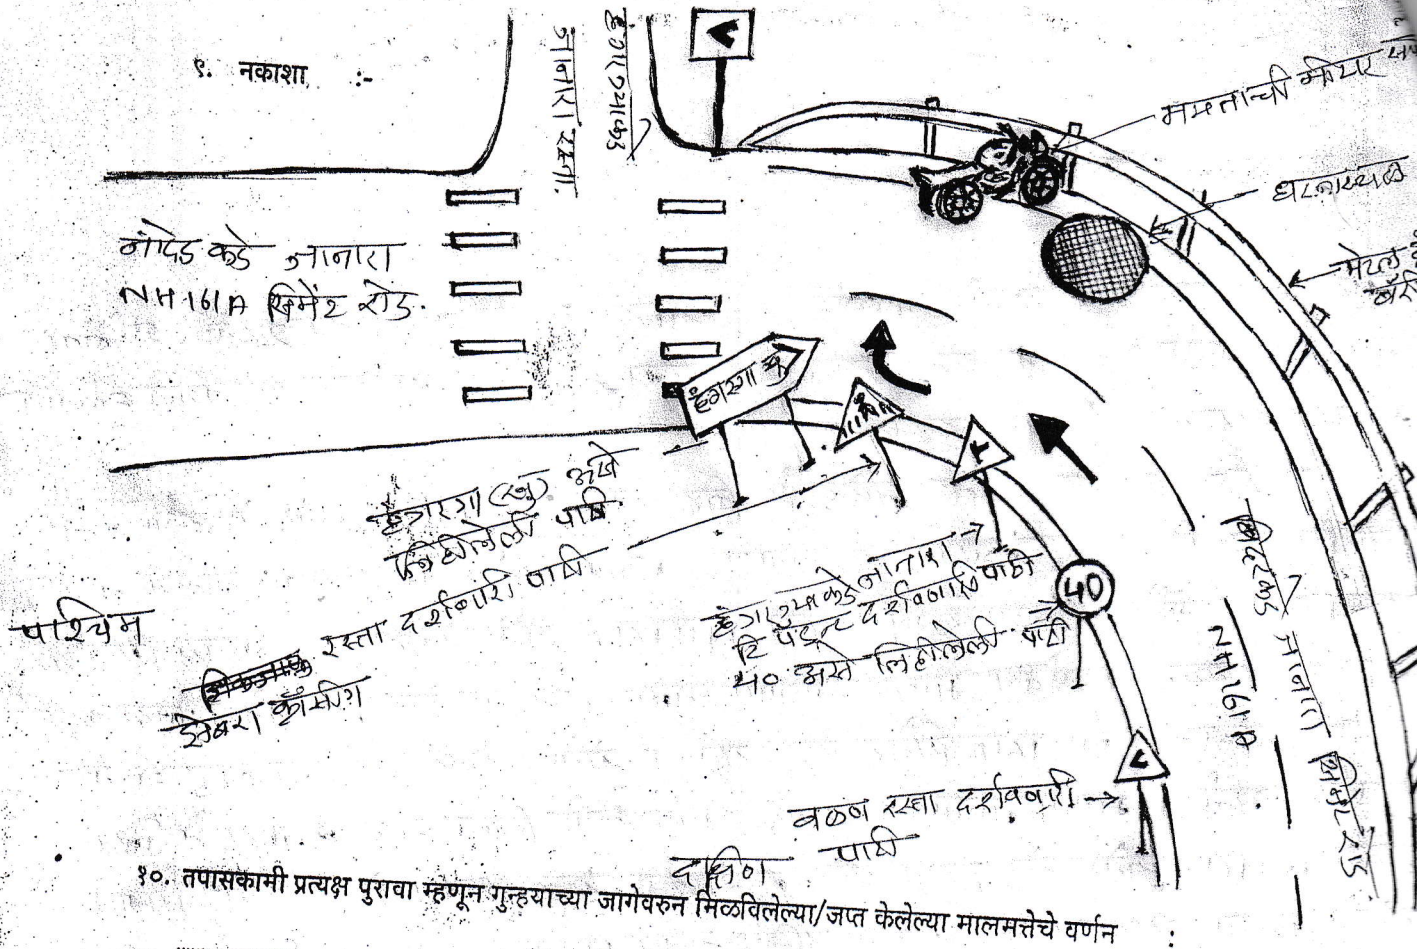 ९. नकाशा :-
हंगरग्याकडे
जानारा रस्ता.
मयताची मोटार
घटनास्थळ
मेटल
नांदेड कडे जानारा
NH 161A सिमेंट रोड.
हंगरगा
हंगरगा (खु) असे
लिहीलेली पाटी
रस्ता दर्शवनारी पाटी
झेब्रा क्रॉसींग
पश्चिम
हंगरग्याकडे जानारा
दर्शवनारी पाटी
४० असे लिहीलेली पाटी
40
बिदरकडे जानारा सिमेंट रोड
NH 161 A
वळण रस्ता दर्शवनारी
पाटी
दक्षिण
१०. तपासकामी प्रत्यक्ष पुरावा म्हणून गुन्हयाच्या जागेवरुन मिळविलेल्या/जप्त केलेल्या मालमत्तेचे वर्णन :